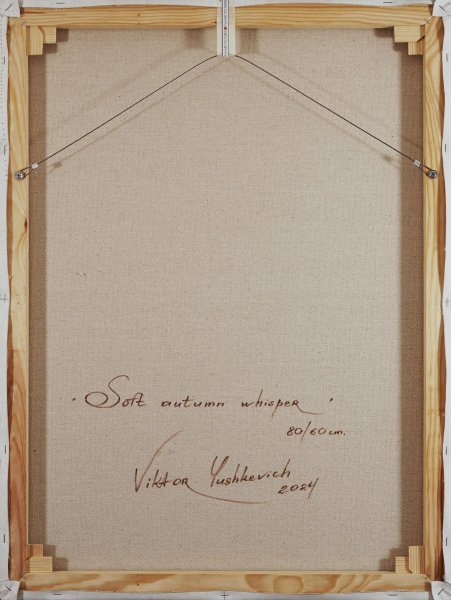 "Soft autumn whisper"
80/60 cm.
Viktor Yushkevich
2024